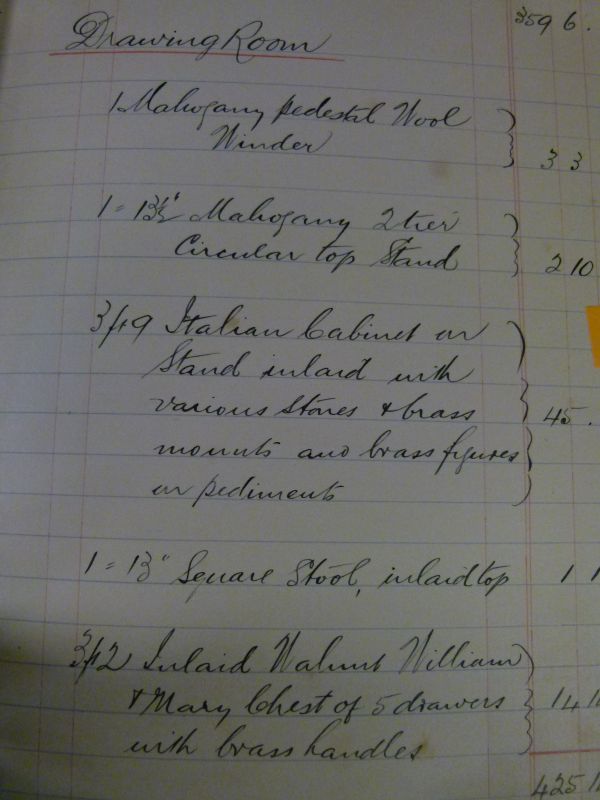 359 6.
Drawing Room
1 Mahogany pedestal Wool
Winder 3 3
1 = 13½" Mahogany 2 tier
Circular top Stand 2 10
3ft 9 Italian Cabinet on
Stand inlaid with
various stones & brass 45 .
mounts and brass figures
on pediments
1 = 13" Square Stool, inlaid top 1 1
3ft 2 Inlaid Walnut William
& Mary Chest of 5 drawers 14
with brass handles
425